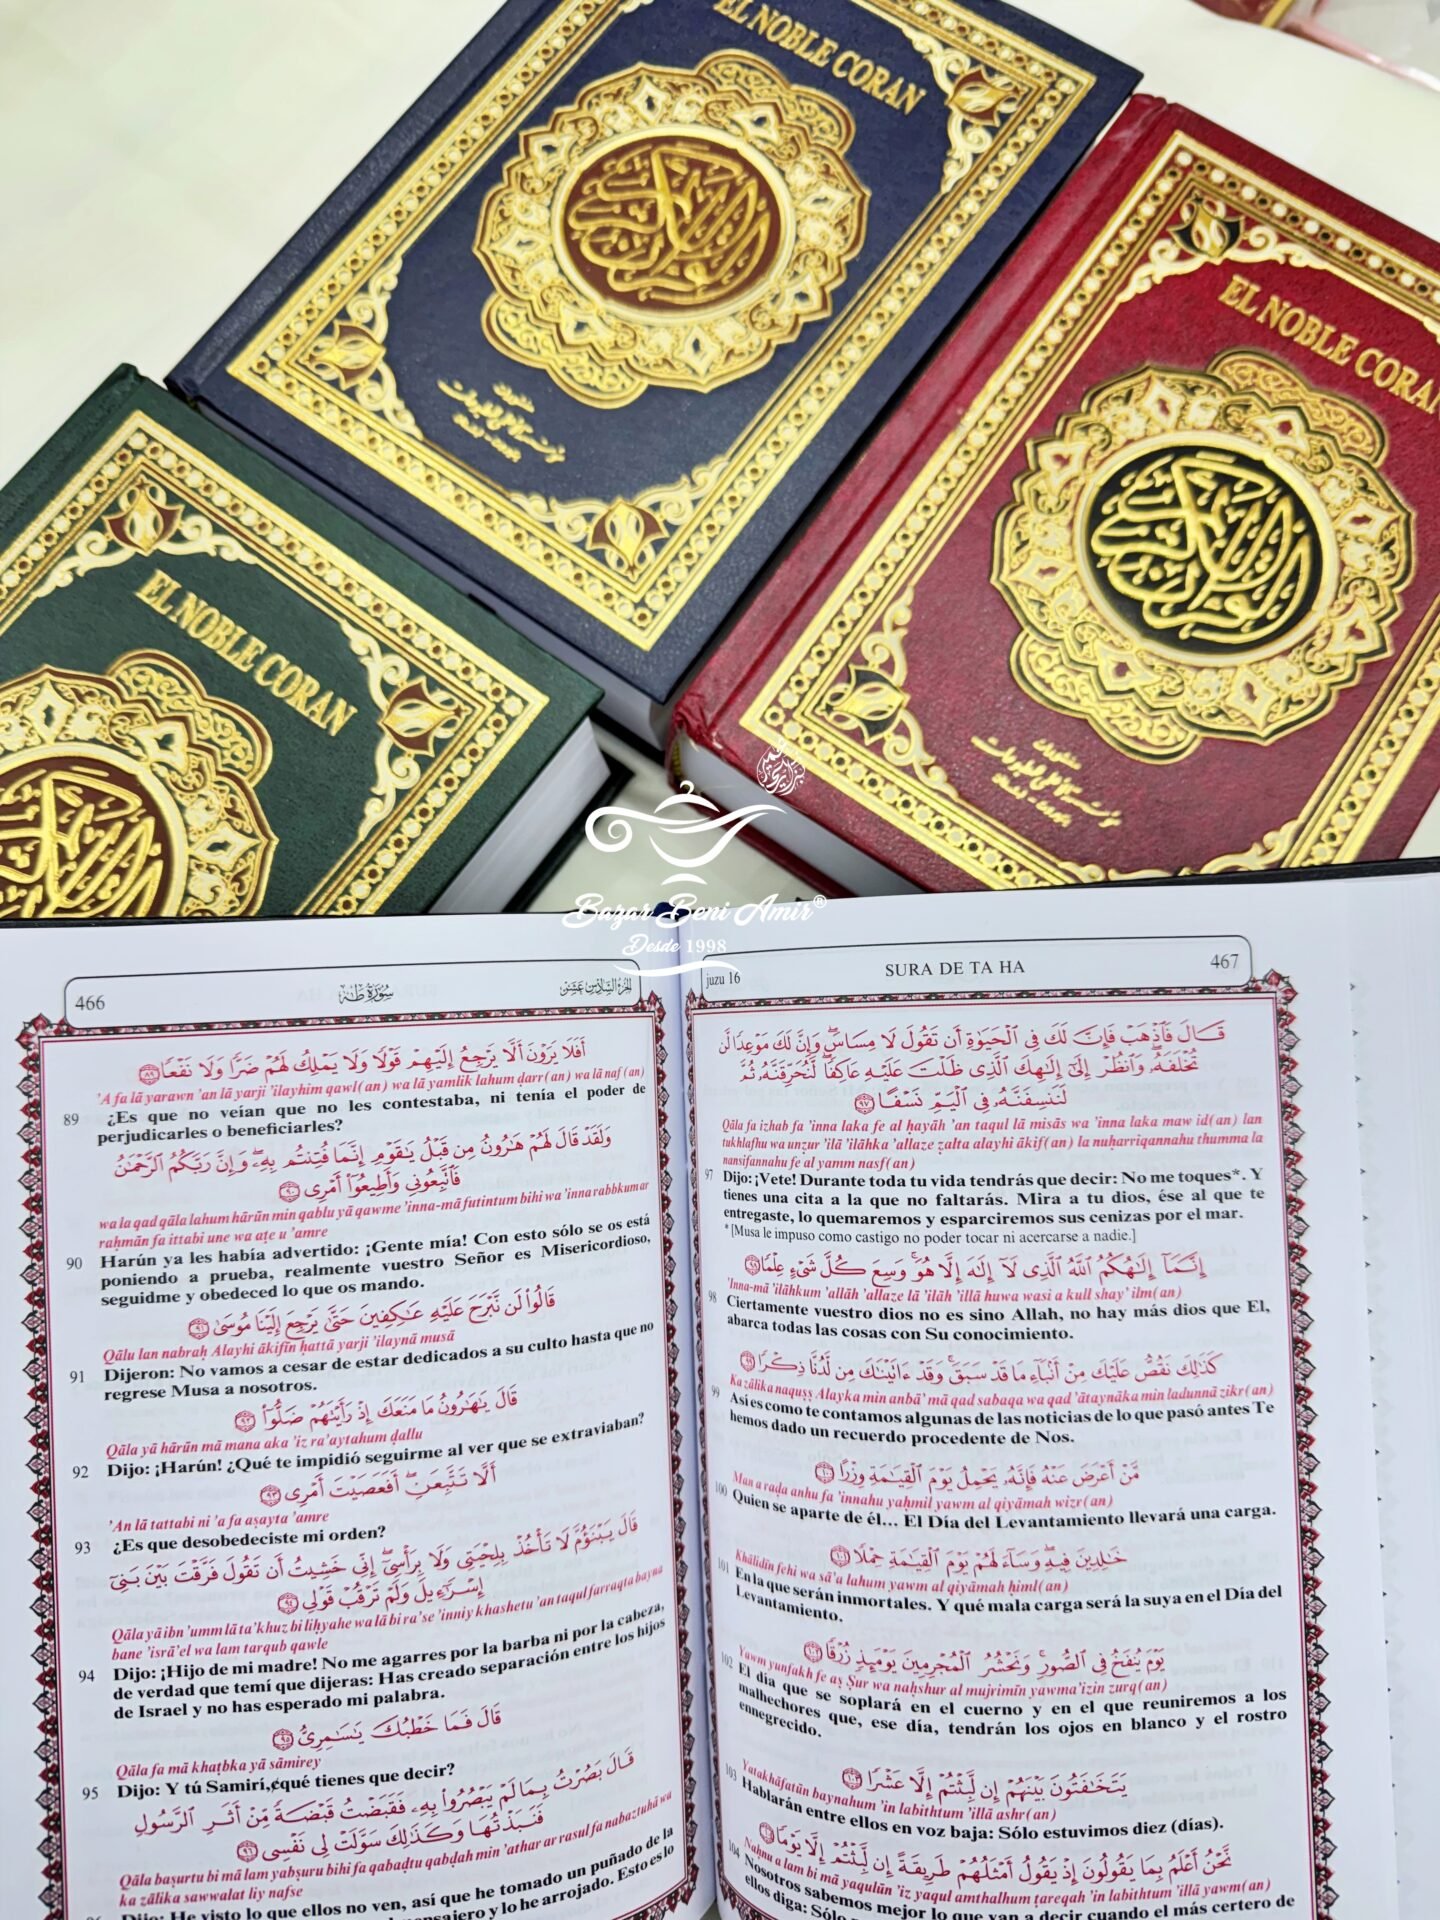 EL NOBLE CORAN
EL NOBLE CORAN
EL NOBLE CORAN
Bazar Beni Amir®
Desde 1998
466
سورة طه
الجزء السادس عشر
أَفَلَا يَرَوْنَ أَلَّا يَرْجِعُ إِلَيْهِمْ قَوْلًا وَلَا يَمْلِكُ لَهُمْ ضَرًّا وَلَا نَفْعًا ٨٩
'A fa lā yarawn 'an lā yarji 'ilayhim qawl(an) wa lā yamlik lahum ḍarr(an) wa lā naf (an)
89 ¿Es que no veían que no les contestaba, ni tenía el poder de
perjudicarles o beneficiarles?
وَلَقَدْ قَالَ لَهُمْ هَٰرُونُ مِن قَبْلُ يَٰقَوْمِ إِنَّمَا فُتِنتُم بِهِۦ وَإِنَّ رَبَّكُمُ الرَّحْمَٰنُ
فَٱتَّبِعُونِى وَأَطِيعُوٓا۟ أَمْرِى ٩٠
wa la qad qāla lahum hārūn min qablu yā qawme 'inna-mā futintum bihi wa 'inna rabbkumar
raḥmān fa ittabi une wa aṭe u 'amre
90 Harún ya les había advertido: ¡Gente mía! Con esto sólo se os está
poniendo a prueba, realmente vuestro Señor es Misericordioso,
seguidme y obedeced lo que os mando.
قَالُوا۟ لَن نَّبْرَحَ عَلَيْهِ عَٰكِفِينَ حَتَّىٰ يَرْجِعَ إِلَيْنَا مُوسَىٰ ٩١
Qālu lan nabraḥ Alayhi ākifīn ḥattā yarji 'ilaynā musā
91 Dijeron: No vamos a cesar de estar dedicados a su culto hasta que no
regrese Musa a nosotros.
قَالَ يَٰهَٰرُونُ مَا مَنَعَكَ إِذْ رَأَيْتَهُمْ ضَلُّوٓا۟ ٩٢
Qāla yā hārūn mā mana aka 'iz ra'aytahum ḍallu
92 Dijo: ¡Harún! ¿Qué te impidió seguirme al ver que se extraviaban?
أَلَّا تَتَّبِعَنِ ۖ أَفَعَصَيْتَ أَمْرِى ٩٣
'An lā tattabi ni 'a fa aṣayta 'amre
93 ¿Es que desobedeciste mi orden?
قَالَ يَبْنَؤُمَّ لَا تَأْخُذْ بِلِحْيَتِى وَلَا بِرَأْسِىٓ ۖ إِنِّى خَشِيتُ أَن تَقُولَ فَرَّقْتَ بَيْنَ بَنِىٓ
إِسْرَٰٓءِيلَ وَلَمْ تَرْقُبْ قَوْلِى ٩٤
Qāla yā ibn 'umm lā ta'khuz bi liḥyahe wa lā bi ra'se 'inniy khashetu 'an taqul farraqta bayna
bane 'isrā'el wa lam tarqub qawle
94 Dijo: ¡Hijo de mi madre! No me agarres por la barba ni por la cabeza,
de verdad que temí que dijeras: Has creado separación entre los hijos
de Israel y no has esperado mi palabra.
قَالَ فَمَا خَطْبُكَ يَٰسَٰمِرِىُّ ٩٥
Qāla fa mā khaṭbka yā sāmirey
95 Dijo: Y tú Samirí,¿qué tienes que decir?
قَالَ بَصُرْتُ بِمَا لَمْ يَبْصُرُوا۟ بِهِۦ فَقَبَضْتُ قَبْضَةً مِّنْ أَثَرِ الرَّسُولِ
فَنَبَذْتُهَا وَكَذَٰلِكَ سَوَّلَتْ لِى نَفْسِى ٩٦
Qāla baṣurtu bi mā lam yabṣuru bihi fa qabaḍtu qabḍah min 'athar ar rasul fa nabaztuhā wa
ka zālika sawwalat liy nafse
96 Dijo: He visto lo que ellos no ven, así que he tomado un puñado de la
mensajero y lo he arrojado. Esto es lo
juzu 16
SURA DE TA HA
467
قَالَ فَٱذْهَبْ فَإِنَّ لَكَ فِى الْحَيَوٰةِ أَن تَقُولَ لَا مِسَاسَ ۖ وَإِنَّ لَكَ مَوْعِدًا لَّن
تُخْلَفَهُۥ ۖ وَٱنظُرْ إِلَىٰٓ إِلَٰهِكَ الَّذِى ظَلْتَ عَلَيْهِ عَاكِفًا ۖ لَّنُحَرِّقَنَّهُۥ ثُمَّ
لَنَنسِفَنَّهُۥ فِى الْيَمِّ نَسْفًا ٩٧
Qāla fa izhab fa 'inna laka fe al ḥayāh 'an taqul lā misās wa 'inna laka maw id(an) lan
tukhlafhu wa unẓur 'ilā 'ilāhka 'allaze ẓalta alayhi ākif(an) la nuḥarriqannahu thumma la
nansifannahu fe al yamm nasf(an)
97 Dijo: ¡Vete! Durante toda tu vida tendrás que decir: No me toques*. Y
tienes una cita a la que no faltarás. Mira a tu dios, ése al que te
entregaste, lo quemaremos y esparciremos sus cenizas por el mar.
* [Musa le impuso como castigo no poder tocar ni acercarse a nadie.]
إِنَّمَآ إِلَٰهُكُمُ اللَّهُ الَّذِى لَآ إِلَٰهَ إِلَّا هُوَ ۚ وَسِعَ كُلَّ شَىْءٍ عِلْمًا ٩٨
'Inna-mā 'ilāhkum 'allāh 'allaze lā 'ilāh 'illā huwa wasi a kull shay' ilm(an)
98 Ciertamente vuestro dios no es sino Allah, no hay más dios que El,
abarca todas las cosas con Su conocimiento.
كَذَٰلِكَ نَقُصُّ عَلَيْكَ مِنْ أَنۢبَآءِ مَا قَدْ سَبَقَ ۚ وَقَدْ ءَاتَيْنَٰكَ مِن لَّدُنَّا ذِكْرًا ٩٩
Ka zālika naquṣṣ Alayka min anbā' mā qad sabaqa wa qad 'ātaynāka min ladunnā zikr(an)
99 Así es como te contamos algunas de las noticias de lo que pasó antes Te
hemos dado un recuerdo procedente de Nos.
مَّنْ أَعْرَضَ عَنْهُ فَإِنَّهُۥ يَحْمِلُ يَوْمَ الْقِيَٰمَةِ وِزْرًا ١٠٠
Man a raḍa anhu fa 'innahu yaḥmil yawm al qiyāmah wizr(an)
100 Quien se aparte de él... El Día del Levantamiento llevará una carga.
خَٰلِدِينَ فِيهِ ۖ وَسَآءَ لَهُمْ يَوْمَ الْقِيَٰمَةِ حِمْلًا ١٠١
Khālidīn fehi wa sā'a lahum yawm al qiyāmah ḥiml(an)
101 En la que serán inmortales. Y qué mala carga será la suya en el Día del
Levantamiento.
يَوْمَ يُنفَخُ فِى الصُّورِ ۚ وَنَحْشُرُ الْمُجْرِمِينَ يَوْمَئِذٍ زُرْقًا ١٠٢
Yawm yunfakh fe aṣ Ṣur wa naḥshur al mujrimīn yawma'izin zurq(an)
102 El día que se soplará en el cuerno y en el que reuniremos a los
malhechores que, ese día, tendrán los ojos en blanco y el rostro
ennegrecido.
يَتَخَٰفَتُونَ بَيْنَهُمْ إِن لَّبِثْتُمْ إِلَّا عَشْرًا ١٠٣
Yatakhāfatūn baynahum 'in labithtum 'illā ashr(an)
103 Hablarán entre ellos en voz baja: Sólo estuvimos diez (días).
نَّحْنُ أَعْلَمُ بِمَا يَقُولُونَ إِذْ يَقُولُ أَمْثَلُهُمْ طَرِيقَةً إِن لَّبِثْتُمْ إِلَّا يَوْمًا ١٠٤
Naḥnu a lam bi mā yaqulūn 'iz yaqul amthalhum ṭareqah 'in labithtum 'illā yawm(an)
104 Nosotros sabemos mejor lo que van a decir cuando el más certero de
ellos diga: Sólo